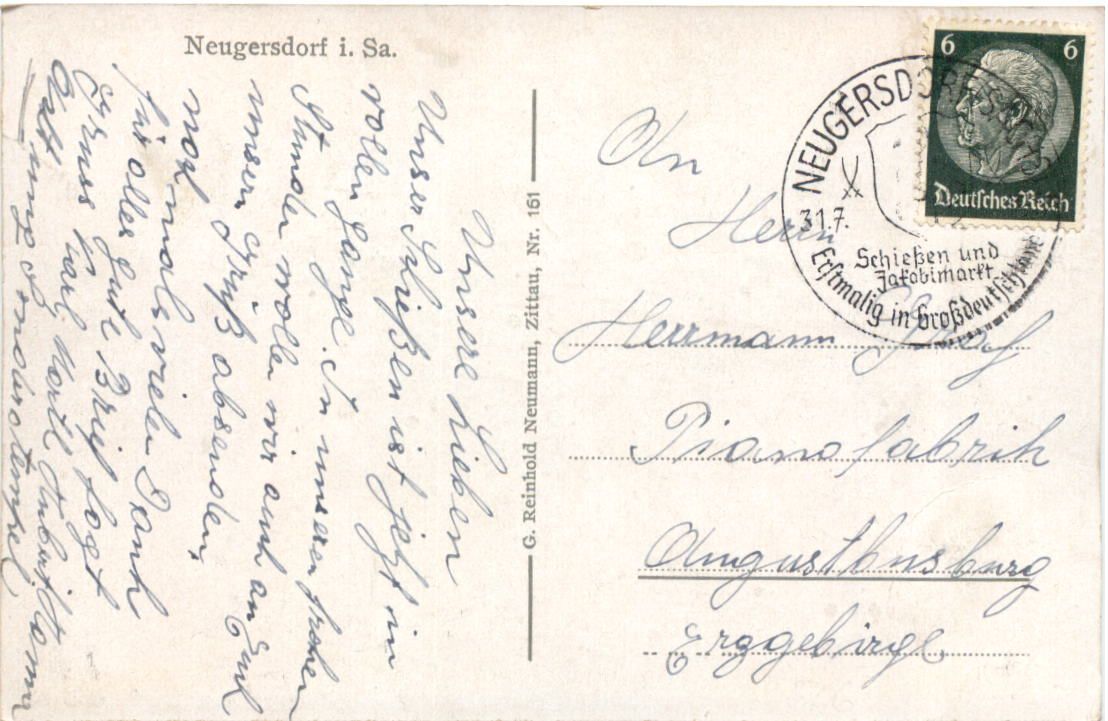 Neugersdorf i. Sa.
Unsere Lieben
Unser Schießen ist jetzt in
vollen Gange. In unseren frohen
Stunden wollen wir auch an Euch
unsern Grüß absenden,
noch mals vielen Dank
für alles gute Brief folgt
Gruss Karl, Horst
und
G. Reinhold Neumann, Zittau, Nr. 161
6 6
Deutsches Reich
NEUGERSDORF
31.7.
Schießen und
Jakobimarkt
Erstmalig in Großdeutschland
An
Herrn
Herrmann
Pianofabrik
Augustusburg
Erzgebirge